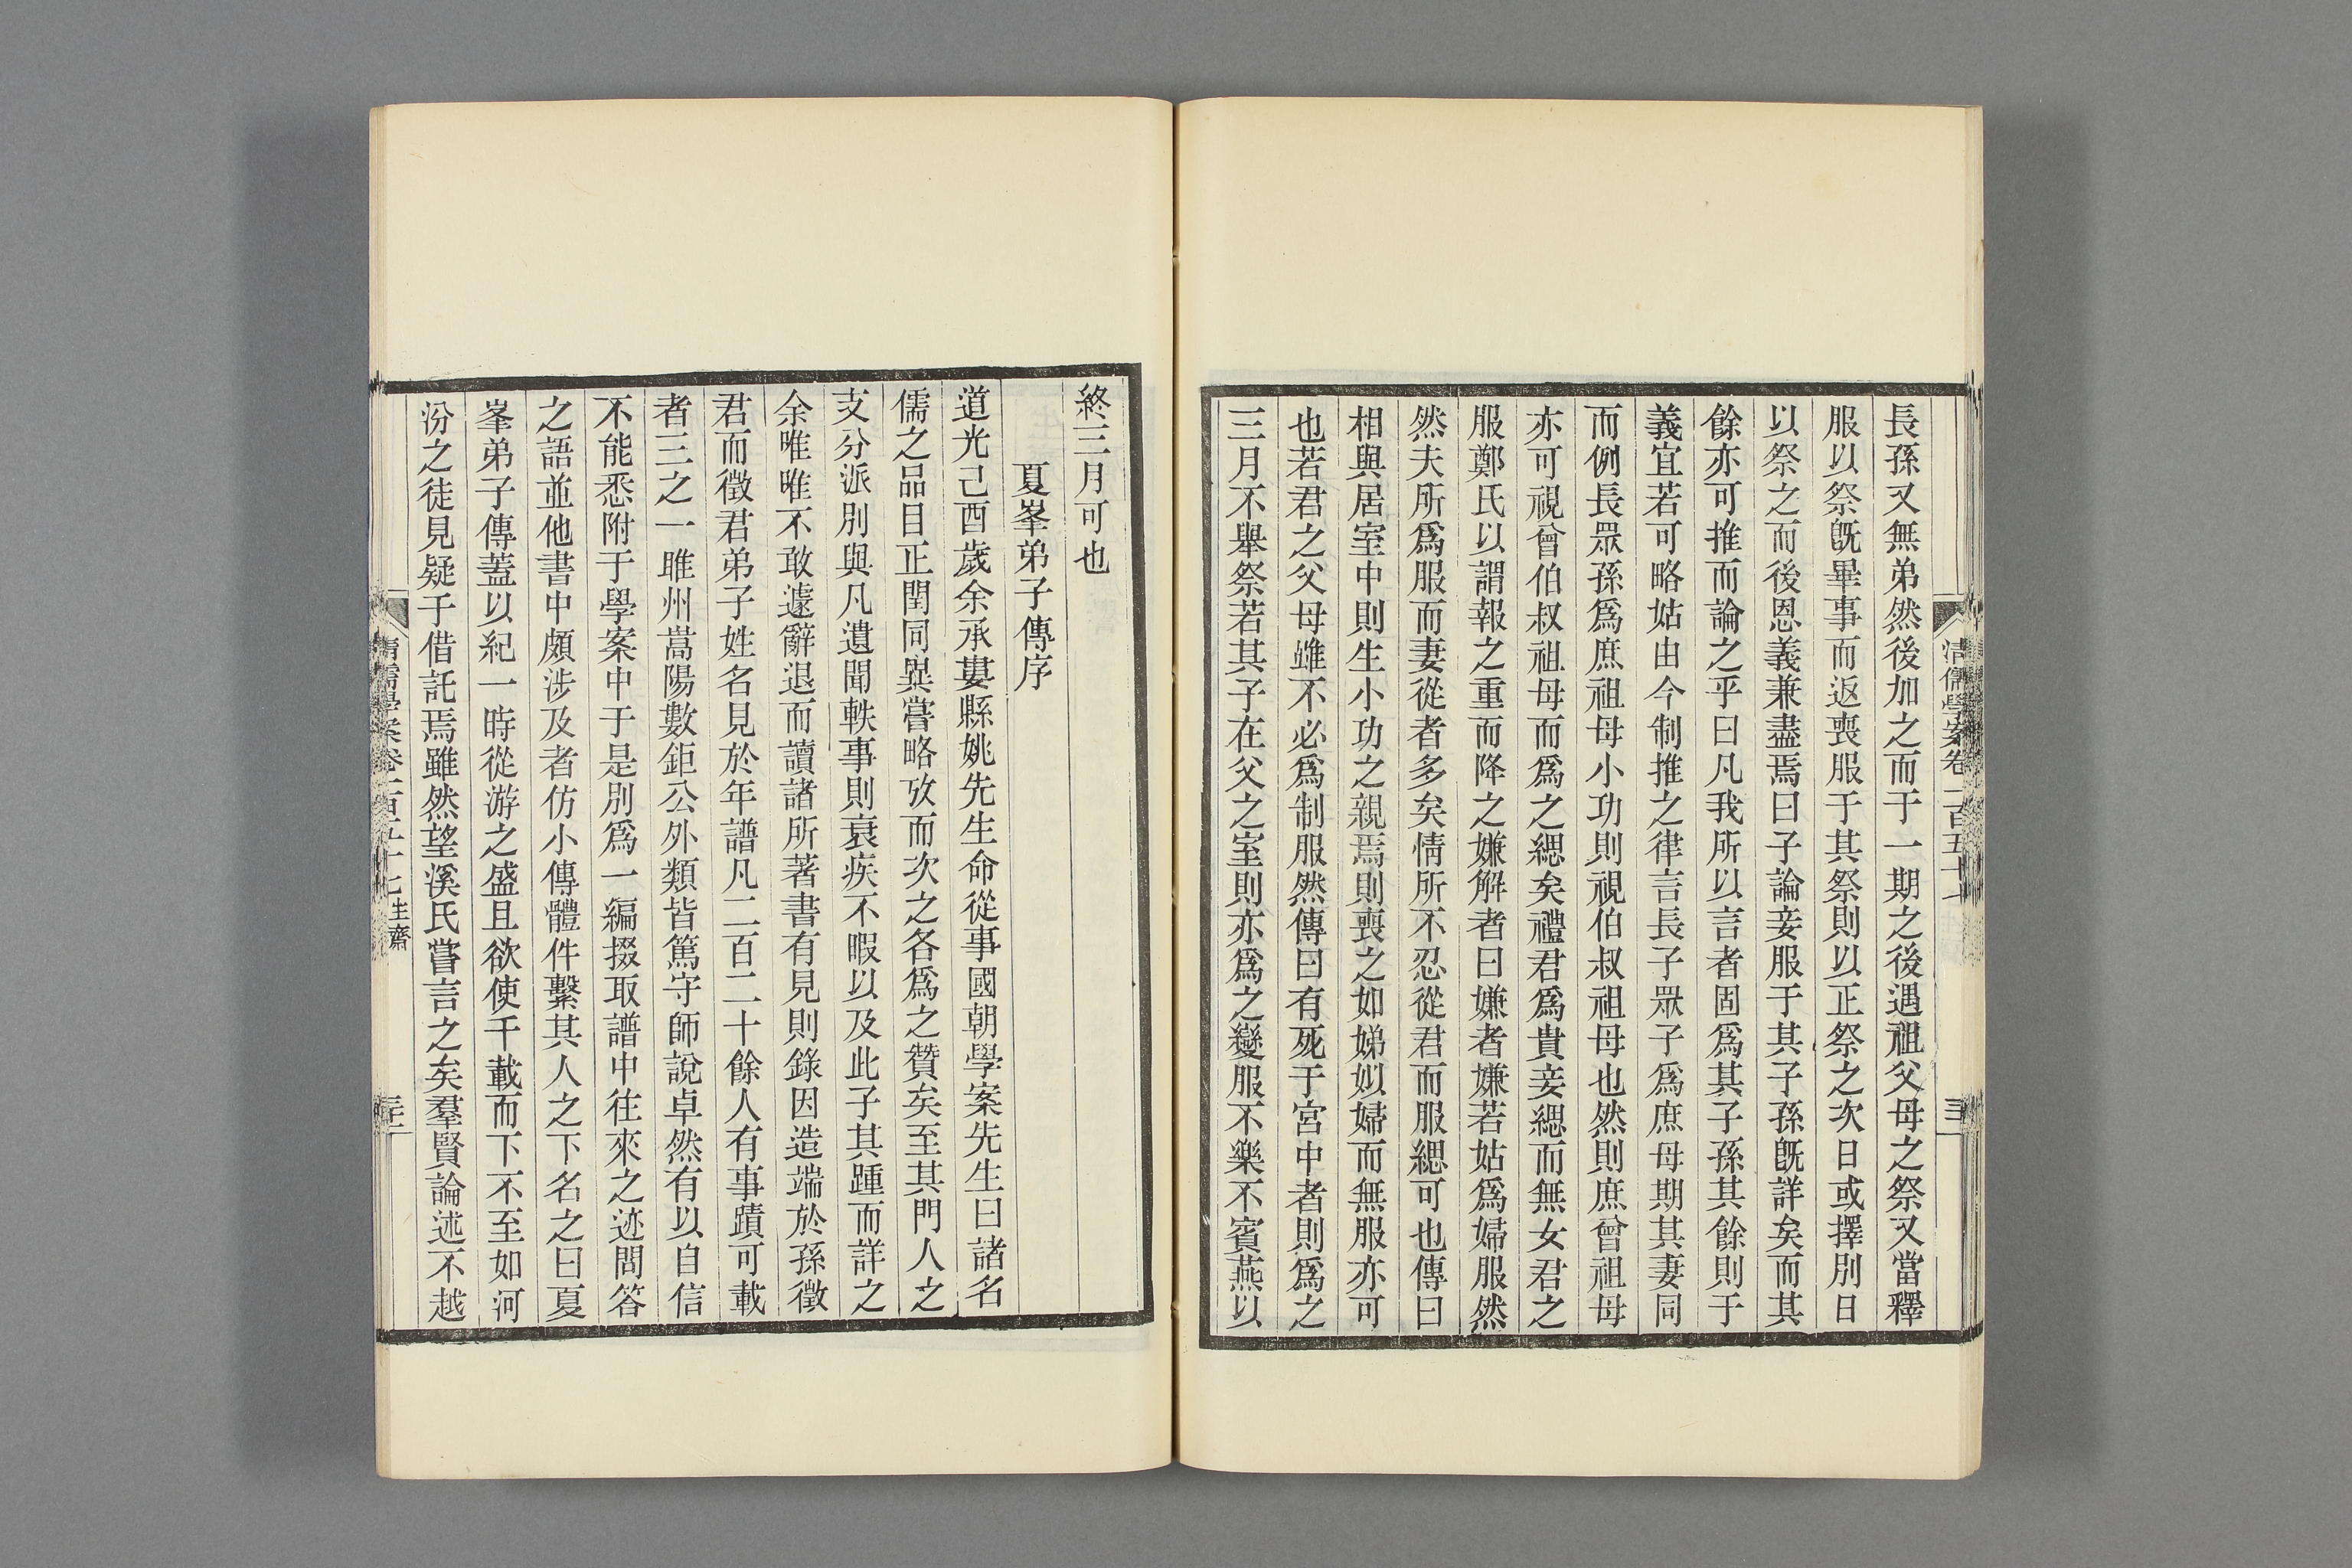 清儒學案卷一百五十七
長孫又無弟然後加之而于一期之後遇祖父母之祭又當釋
服以祭旣畢事而返喪服于其祭則以正祭之次日或擇別日
以祭之而後恩義兼盡焉曰子論妾服于其子孫旣詳矣而其
餘亦可推而論之乎曰凡我所以言者固爲其子孫其餘則于
義宜若可略姑由今制推之律言長子眾子爲庶母期其妻同
而例長眾孫爲庶祖母小功則視伯叔祖母也然則庶曾祖母
亦可視曾伯叔祖母而爲之緦矣禮君爲貴妾緦而無女君之
服鄭氏以謂報之重而降之嫌解者曰嫌者嫌若姑爲婦服然
然夫所爲服而妻從者多矣情所不忍從君而服緦可也傳曰
相與居室中則生小功之親焉則喪之如娣姒婦而無服亦可
也若君之父母雖不必爲制服然傳曰有死于宮中者則爲之
三月不舉祭若其子在父之室則亦爲之變服不樂不賓燕以
終三月可也
夏峯弟子傳序
道光己酉歲余承婁縣姚先生命從事國朝學案先生曰諸名
儒之品目正閏同異嘗略攷而次之各爲之贊矣至其門人之
支分派別與凡遺聞軼事則衰疾不暇以及此子其踵而詳之
余唯唯不敢遽辭退而讀諸所著書有見則錄因造端於孫徵
君而徵君弟子姓名見於年譜凡二百二十餘人有事蹟可載
者三之一睢州嵩陽數鉅公外類皆篤守師說卓然有以自信
不能悉附于學案中于是別爲一編掇取譜中往來之迹問答
之語並他書中頗涉及者仿小傳體件繫其人之下名之曰夏
峯弟子傳蓋以紀一時從游之盛且欲使千載而下不至如河
汾之徒見疑于借託焉雖然望溪氏嘗言之矣羣賢論述不越
清儒學案卷一百五十七 生齋